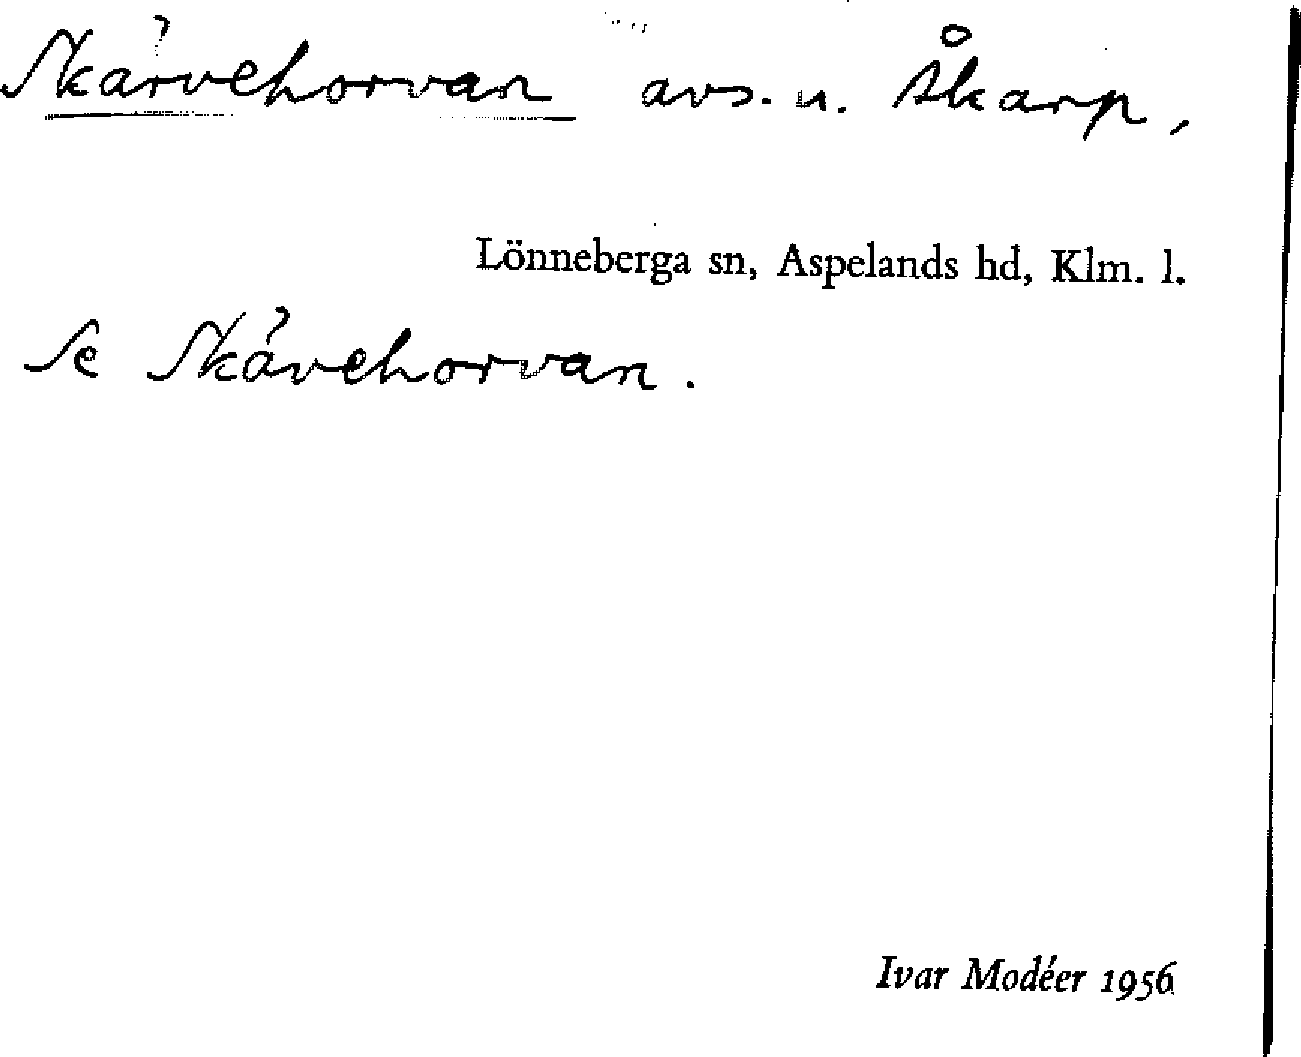 Skårvehorvan avs. u. Åkarp,
Lönneberga sn, Aspelands hd, Klm. l.
Se Skåvehorvan.
Ivar Modéer 1956